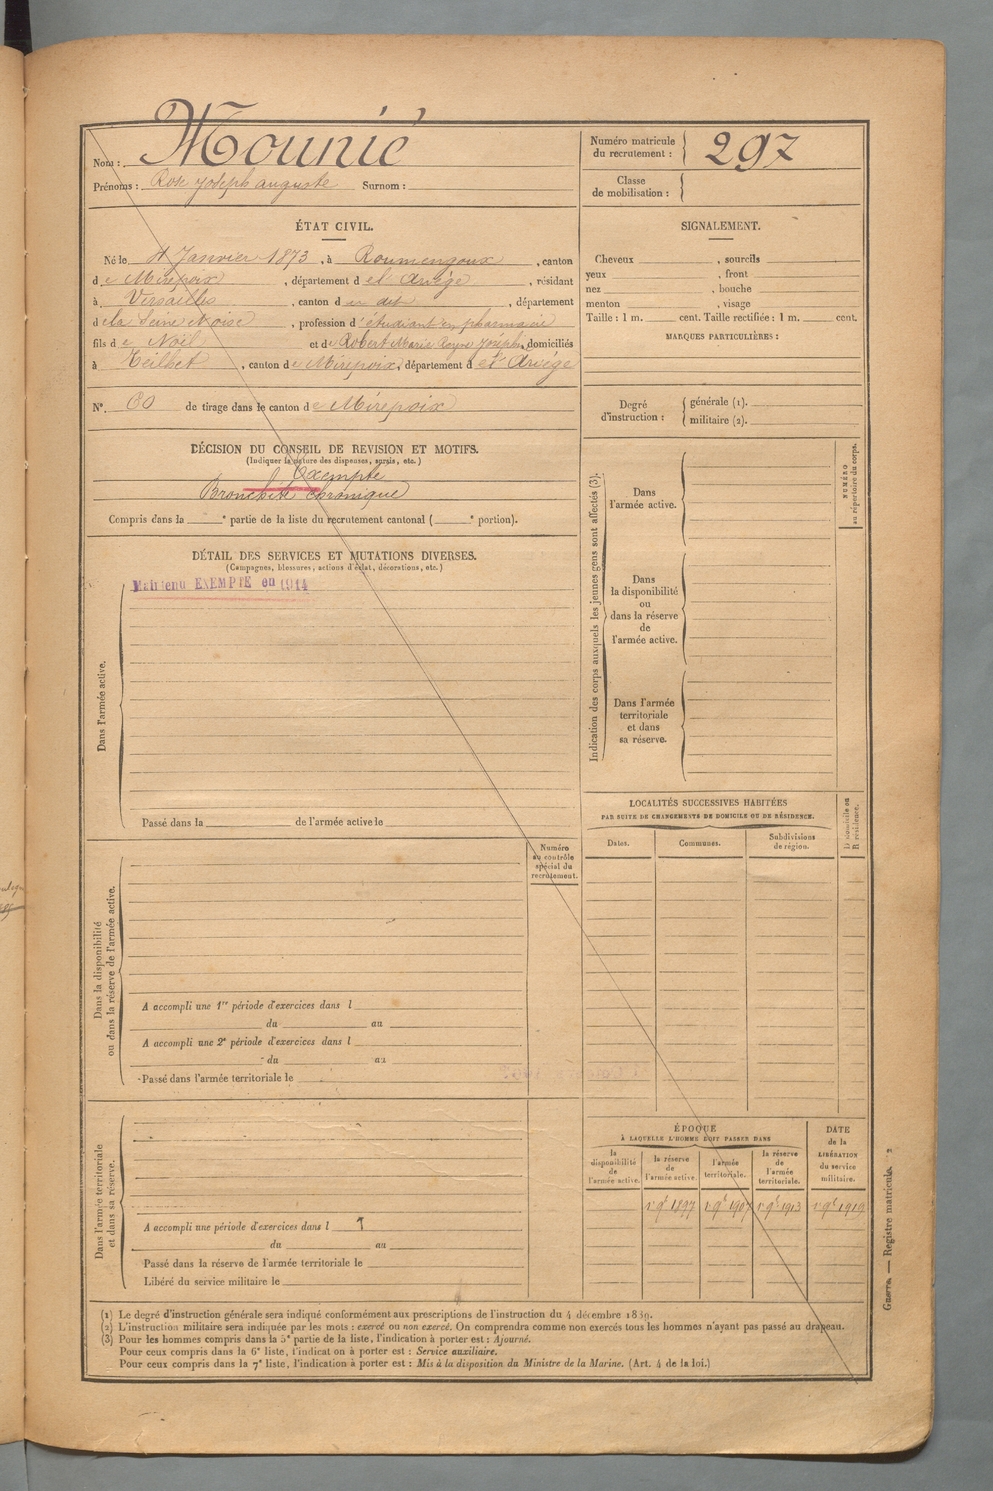 Nom : Mounié
Prénoms : Rose Joseph auguste Surnom :
Numéro matricule du recrutement : 297
Classe de mobilisation :
ÉTAT CIVIL.
Né le 4 Janvier 1873, à Roumengoux, canton
de Mirepoix, département de l'Ariège, résidant
à Versailles, canton du dit, département
de la Seine et oise, profession d'étudiant en pharmacie
fils de Noël et de Robert Marie Josèphe, domiciliés
à Teilhet, canton de Mirepoix, département de l'Ariége
N°. 60 de tirage dans le canton de Mirepoix
DÉCISION DU CONSEIL DE REVISION ET MOTIFS.
(Indiquer la nature des dispenses, sursis, etc.)
Exempté
Bronchite chronique
Compris dans la e partie de la liste du recrutement cantonal ( e portion).
DÉTAIL DES SERVICES ET MUTATIONS DIVERSES.
(Campagnes, blessures, actions d'éclat, décorations, etc.)
Maintenu EXEMPTÉ en 1914
Dans l'armée active.
Passé dans la de l'armée active le
Numéro au contrôle spécial du recrutement.
Dans la disponibilité
ou dans la réserve de l'armée active.
A accompli une 1re période d'exercices dans l
du au
A accompli une 2e période d'exercices dans l
du au
Passé dans l'armée territoriale le
Dans l'armée territoriale
et dans sa réserve.
A accompli une période d'exercices dans l
du au
Passé dans la réserve de l'armée territoriale le
Libéré du service militaire le
SIGNALEMENT.
Cheveux , sourcils
yeux , front
nez , bouche
menton , visage
Taille : 1 m. cent. Taille rectifiée : 1 m. cent.
MARQUES PARTICULIÈRES :
Degré d'instruction : générale (1).
militaire (2).
Indication des corps auxquels les jeunes gens sont affectés (3).
NUMÉRO
au répertoire du corps.
Dans
l'armée active.
Dans
la disponibilité
ou
dans la réserve
de
l'armée active.
Dans l'armée
territoriale
et dans
sa réserve.
LOCALITÉS SUCCESSIVES HABITÉES
PAR SUITE DE CHANGEMENTS DE DOMICILE OU DE RÉSIDENCE.
Dates. Communes. Subdivisions de région.
Domicile ou
Résidence.
ÉPOQUE
À LAQUELLE L'HOMME DOIT PASSER DANS
la disponibilité de l'armée active.
la réserve de l'armée active.
l'armée territoriale.
la réserve de l'armée territoriale.
DATE de la LIBÉRATION du service militaire.
1897 1907 1913 1919
(1) Le degré d'instruction générale sera indiqué conformément aux prescriptions de l'instruction du 4 décembre 1889.
(2) L'instruction militaire sera indiquée par les mots : exercé ou non exercé. On comprendra comme non exercés tous les hommes n'ayant pas passé au drapeau.
(3) Pour les hommes compris dans la 5e partie de la liste, l'indication à porter est : Ajourné.
Pour ceux compris dans la 6e liste, l'indication à porter est : Service auxiliaire.
Pour ceux compris dans la 7e liste, l'indication à porter est : Mis à la disposition du Ministre de la Marine. (Art. 4 de la loi.)
Guerre. — Registre matricule. 2